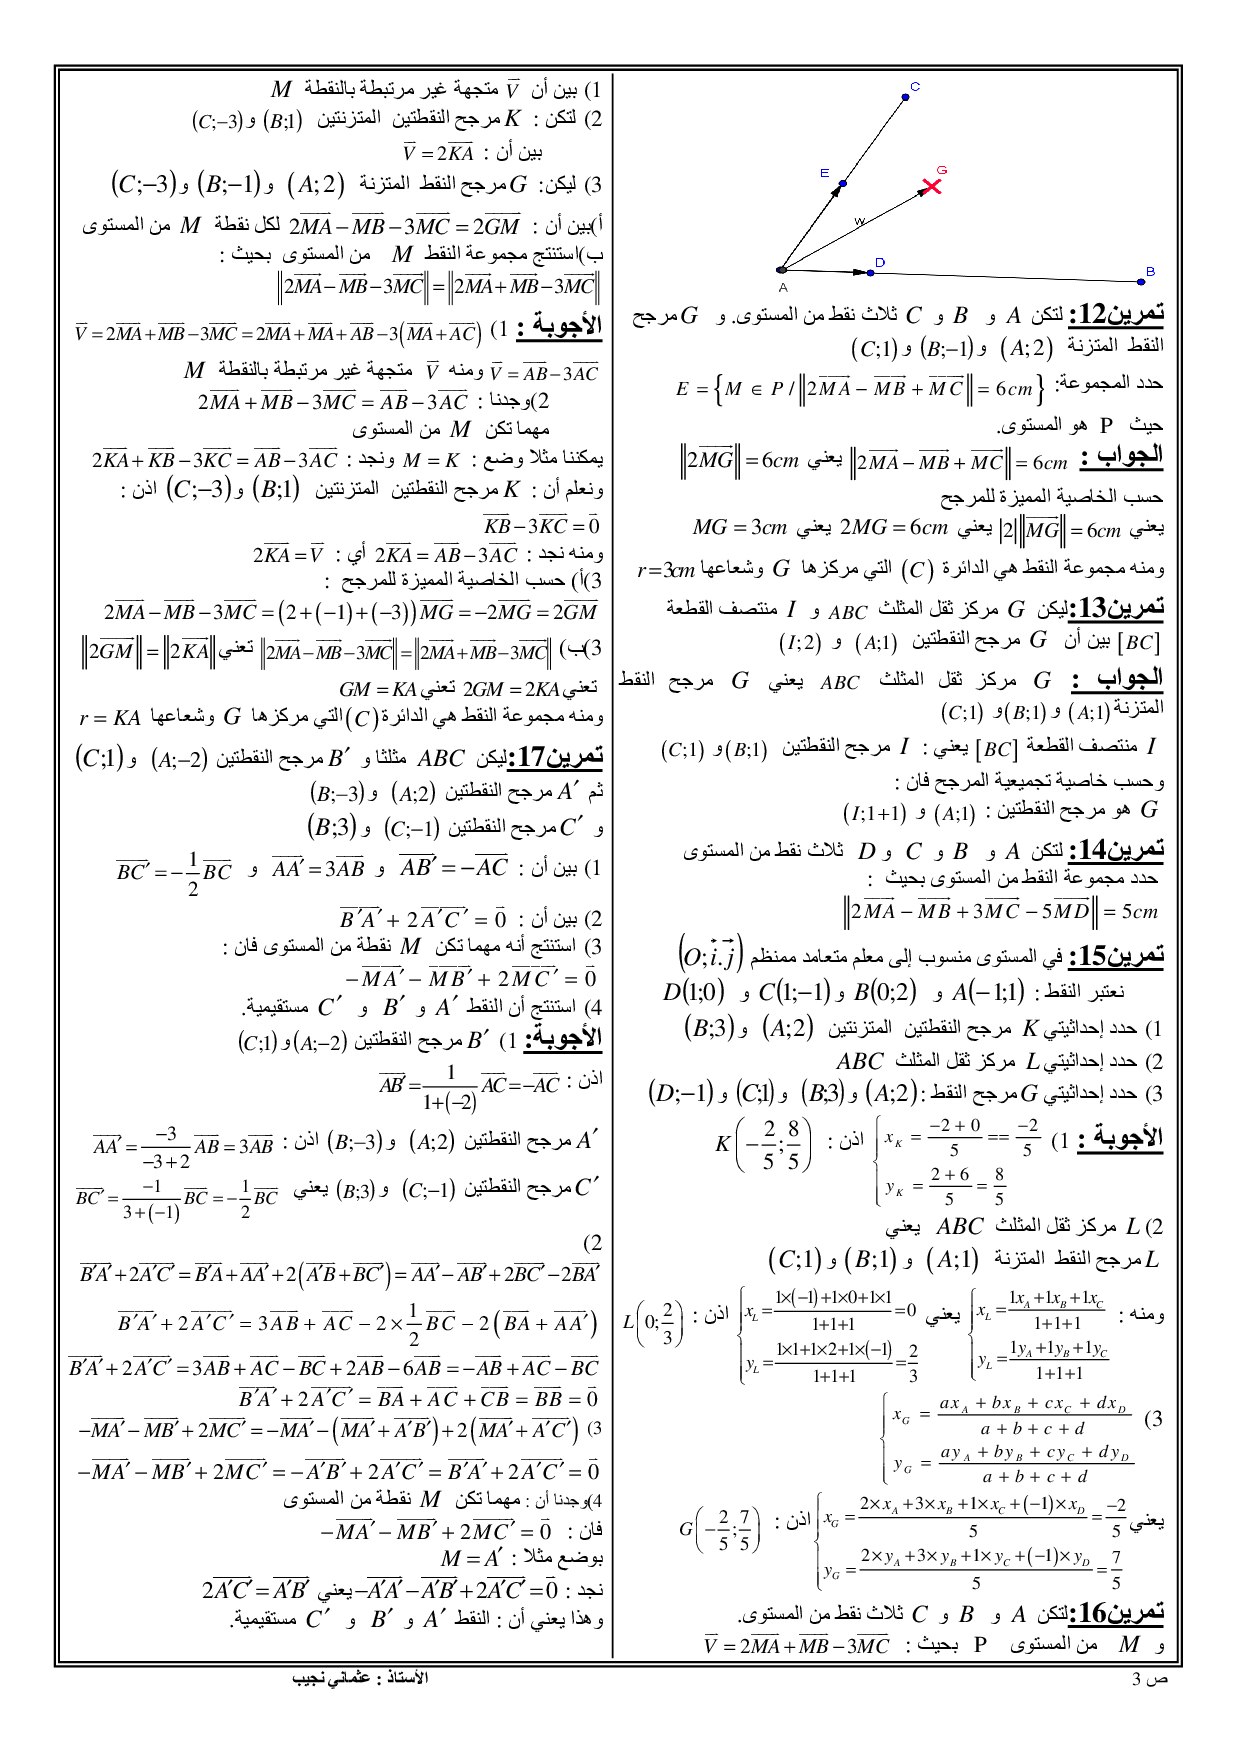 C
E
G
w
D
B
A
تمرين12: لتكن A و B و C ثلاث نقط من المستوى. و G مرجح
النقط المتزنة (A;2) و (B;−1) و (C;1)
حدد المجموعة: E = {M ∈ P / ‖2MA⃗ − MB⃗ + MC⃗‖ = 6cm}
حيث P هو المستوى.
الجواب : ‖2MA⃗ − MB⃗ + MC⃗‖ = 6cm يعني ‖2MG⃗‖ = 6cm
حسب الخاصية المميزة للمرجح
يعني |2|‖MG⃗‖ = 6cm يعني 2MG = 6cm يعني MG = 3cm
ومنه مجموعة النقط هي الدائرة (C) التي مركزها G وشعاعها r=3cm
تمرين13:ليكن G مركز ثقل المثلث ABC و I منتصف القطعة
[BC] بين أن G مرجح النقطتين (A;1) و (I;2)
الجواب : G مركز ثقل المثلث ABC يعني G مرجح النقط
المتزنة (A;1) و (B;1) و (C;1)
I منتصف القطعة [BC] يعني : I مرجح النقطتين (B;1) و (C;1)
وحسب خاصية تجميعية المرجح فان :
G هو مرجح النقطتين : (A;1) و (I;1+1)
تمرين14: لتكن A و B و C و D ثلاث نقط من المستوى
حدد مجموعة النقط من المستوى بحيث :
‖2MA⃗ − MB⃗ + 3MC⃗ − 5MD⃗‖ = 5cm
تمرين15: في المستوى منسوب إلى معلم متعامد ممنظم (O;i⃗.j⃗)
نعتبر النقط : A(−1;1) و B(0;2) و C(1;−1) و D(1;0)
1) حدد إحداثيتي K مرجح النقطتين المتزنتين (A;2) و (B;3)
2) حدد إحداثيتي L مركز ثقل المثلث ABC
3) حدد إحداثيتي G مرجح النقط : (A;2) و (B;3) و (C;1) و (D;−1)
الأجوبة : 1) { x_K = (−2+0)/5 == −2/5 ; y_K = (2+6)/5 = 8/5 اذن : K(−2/5;8/5)
2) L مركز ثقل المثلث ABC يعني
L مرجح النقط المتزنة (A;1) و (B;1) و (C;1)
ومنه : { x_L = (1x_A+1x_B+1x_C)/(1+1+1) ; y_L = (1y_A+1y_B+1y_C)/(1+1+1) يعني { x_L = (1×(−1)+1×0+1×1)/(1+1+1) = 0 ; y_L = (1×1+1×2+1×(−1))/(1+1+1) = 2/3 اذن : L(0;2/3)
3) { x_G = (ax_A+bx_B+cx_C+dx_D)/(a+b+c+d) ; y_G = (ay_A+by_B+cy_C+dy_D)/(a+b+c+d)
يعني { x_G = (2×x_A+3×x_B+1×x_C+(−1)×x_D)/5 = −2/5 ; y_G = (2×y_A+3×y_B+1×y_C+(−1)×y_D)/5 = 7/5 اذن : G(−2/5;7/5)
تمرين16:لتكن A و B و C ثلاث نقط من المستوى.
و M من المستوى P بحيث : V⃗ = 2MA⃗ + MB⃗ − 3MC⃗
1) بين أن V⃗ متجهة غير مرتبطة بالنقطة M
2) لتكن : K مرجح النقطتين المتزنتين (B;1) و (C;−3)
بين أن : V⃗ = 2KA⃗
3) ليكن: G مرجح النقط المتزنة (A;2) و (B;−1) و (C;−3)
أ)بين أن : 2MA⃗ − MB⃗ − 3MC⃗ = 2GM⃗ لكل نقطة M من المستوى
ب)استنتج مجموعة النقط M من المستوى بحيث :
‖2MA⃗ − MB⃗ − 3MC⃗‖ = ‖2MA⃗ + MB⃗ − 3MC⃗‖
الأجوبة : 1) V⃗ = 2MA⃗ + MB⃗ − 3MC⃗ = 2MA⃗ + MA⃗ + AB⃗ − 3(MA⃗ + AC⃗)
V⃗ = AB⃗ − 3AC⃗ ومنه V⃗ متجهة غير مرتبطة بالنقطة M
2)وجدنا : 2MA⃗ + MB⃗ − 3MC⃗ = AB⃗ − 3AC⃗
مهما تكن M من المستوى
يمكننا مثلا وضع : M = K ونجد : 2KA⃗ + KB⃗ − 3KC⃗ = AB⃗ − 3AC⃗
ونعلم أن : K مرجح النقطتين المتزنتين (B;1) و (C;−3) اذن :
KB⃗ − 3KC⃗ = 0⃗
ومنه نجد : 2KA⃗ = AB⃗ − 3AC⃗ أي : 2KA⃗ = V⃗
3)أ) حسب الخاصية المميزة للمرجح :
2MA⃗ − MB⃗ − 3MC⃗ = (2+(−1)+(−3))MG⃗ = −2MG⃗ = 2GM⃗
3)ب) ‖2MA⃗ − MB⃗ − 3MC⃗‖ = ‖2MA⃗ + MB⃗ − 3MC⃗‖ تعني ‖2GM⃗‖ = ‖2KA⃗‖
تعني 2GM = 2KA تعني GM = KA
ومنه مجموعة النقط هي الدائرة (C) التي مركزها G وشعاعها r = KA
تمرين17:ليكن ABC مثلثا و B′ مرجح النقطتين (A;−2) و (C;1)
ثم A′ مرجح النقطتين (A;2) و (B;−3)
و C′ مرجح النقطتين (C;−1) و (B;3)
1) بين أن : AB′⃗ = −AC⃗ و AA′⃗ = 3AB⃗ و BC′⃗ = −1/2 BC⃗
2) بين أن : B′A′⃗ + 2A′C′⃗ = 0⃗
3) استنتج أنه مهما تكن M نقطة من المستوى فان :
−MA′⃗ − MB′⃗ + 2MC′⃗ = 0⃗
4) استنتج أن النقط A′ و B′ و C′ مستقيمية.
الأجوبة: 1) B′ مرجح النقطتين (A;−2) و (C;1)
اذن : AB′⃗ = 1/(1+(−2)) AC⃗ = −AC⃗
A′ مرجح النقطتين (A;2) و (B;−3) اذن : AA′⃗ = −3/(−3+2) AB⃗ = 3AB⃗
C′ مرجح النقطتين (C;−1) و (B;3) يعني BC′⃗ = −1/(3+(−1)) BC⃗ = −1/2 BC⃗
2)
B′A′⃗ + 2A′C′⃗ = B′A⃗ + AA′⃗ + 2(A′B⃗ + BC′⃗) = AA′⃗ − AB′⃗ + 2BC′⃗ − 2BA′⃗
B′A′⃗ + 2A′C′⃗ = 3AB⃗ + AC⃗ − 2×1/2 BC⃗ − 2(BA⃗ + AA′⃗)
B′A′⃗ + 2A′C′⃗ = 3AB⃗ + AC⃗ − BC⃗ + 2AB⃗ − 6AB⃗ = −AB⃗ + AC⃗ − BC⃗
B′A′⃗ + 2A′C′⃗ = BA⃗ + AC⃗ + CB⃗ = BB⃗ = 0⃗
3) −MA′⃗ − MB′⃗ + 2MC′⃗ = −MA′⃗ − (MA′⃗ + A′B′⃗) + 2(MA′⃗ + A′C′⃗)
−MA′⃗ − MB′⃗ + 2MC′⃗ = −A′B′⃗ + 2A′C′⃗ = B′A′⃗ + 2A′C′⃗ = 0⃗
4)وجدنا أن : مهما تكن M نقطة من المستوى
فان : −MA′⃗ − MB′⃗ + 2MC′⃗ = 0⃗
بوضع مثلا : M = A′
نجد : −A′A′⃗ − A′B′⃗ + 2A′C′⃗ = 0⃗ يعني 2A′C′⃗ = A′B′⃗
وهذا يعني أن : النقط A′ و B′ و C′ مستقيمية.
ص 3
الأستاذ : عثماني نجيب